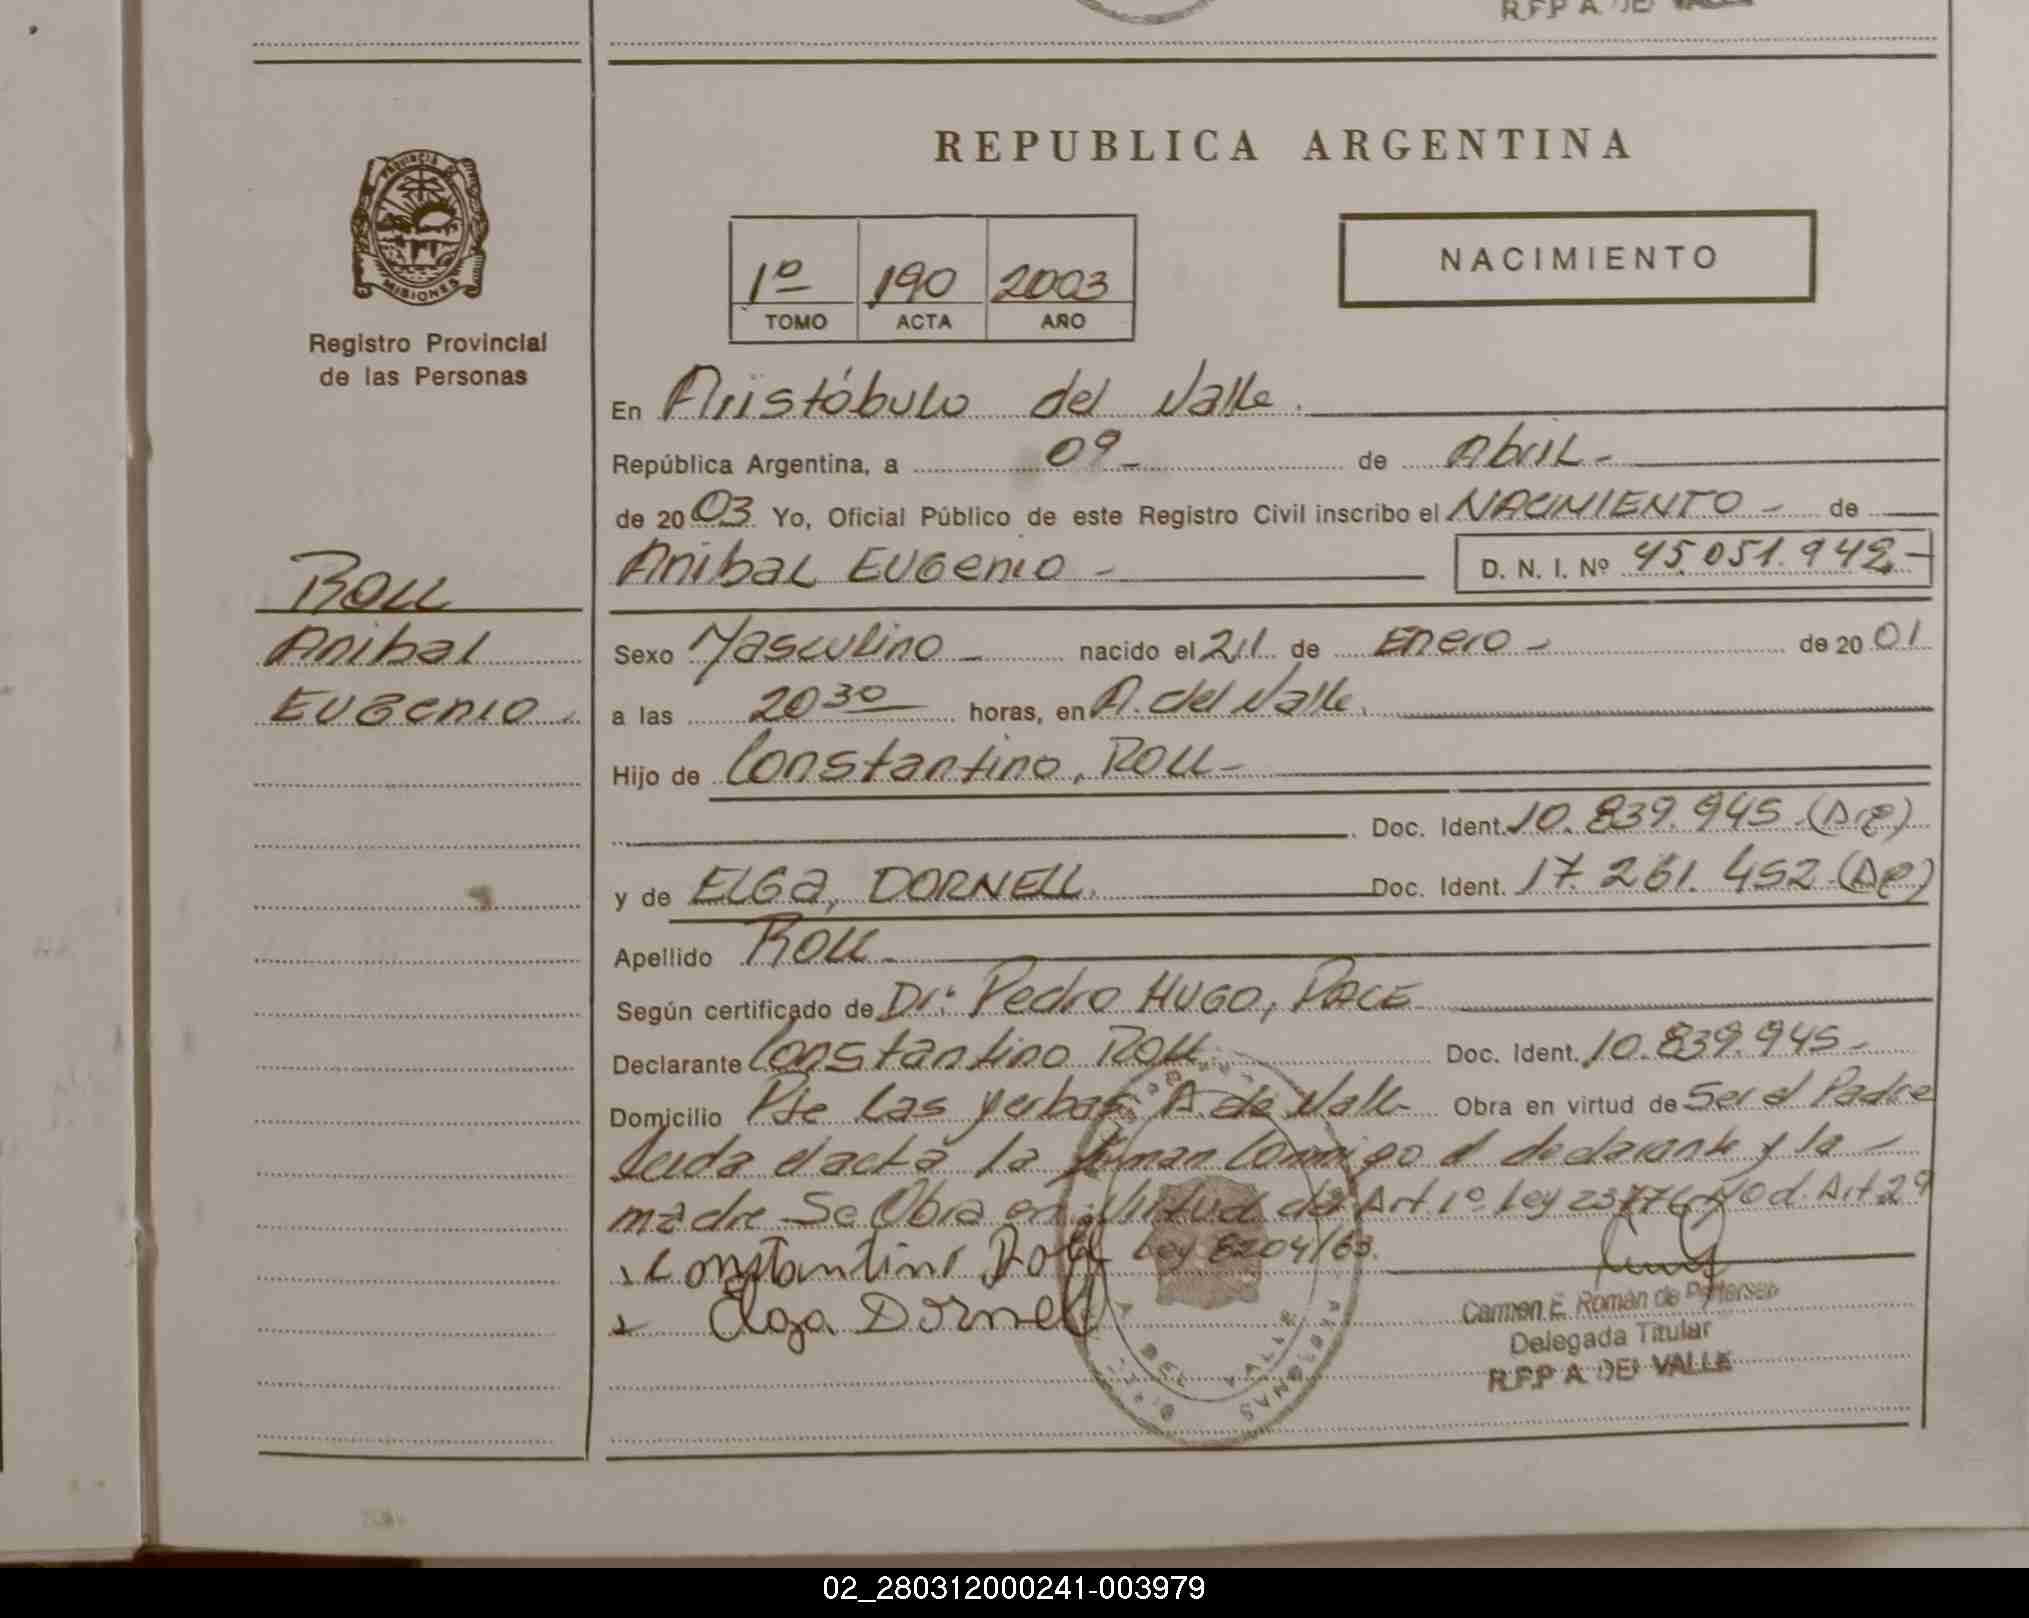 R.P.P A DEL VALLE
REPUBLICA ARGENTINA
PROVINCIA DE
MISIONES
Registro Provincial
de las Personas
1º 190 2003
TOMO ACTA AÑO
NACIMIENTO
En Aristóbulo del Valle.
República Argentina, a 09 - de Abril -
de 2003 Yo, Oficial Público de este Registro Civil inscribo el NACIMIENTO - de
Anibal Eugenio - D. N. I. Nº 45.051.942-
ROLL
Anibal
Eugenio.
Sexo Masculino - nacido el 21 de Enero - de 2001
a las 20 30 horas, en A. del Valle.
Hijo de Constantino, ROLL -
Doc. Ident. 10.839.945 (Arg)
y de ELGA, DORNELL. Doc. Ident. 17.261.452 (Ar)
Apellido ROLL -
Según certificado de Dr: Pedro HUGO, PACE
Declarante Constantino ROLL - Doc. Ident. 10.839.945 -
Domicilio Pje Las yerbas A. de Valle - Obra en virtud de Ser el Padre
Leida el acta la firman Conmigo el declarante y la -
madre Se Obra en Virtud del Art 1º Ley 23776 Mod. Art. 29
Ley 8204/63.
Constantino Roll
Elga Dornell
Carmen E. Román de Pettersen
Delegada Titular
R.P.P A. DEL VALLE
A DEL VALLE
02_280312000241-003979